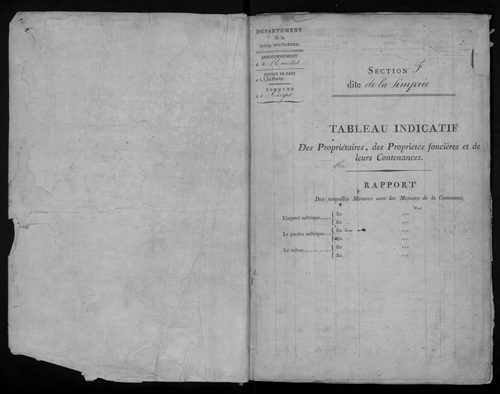 DÉPARTEMENT
de la
LOIRE INFÉRIEURE.
ARRONDISSEMENT
d Nantes
JUSTICE DE PAIX
COMMUNE
SECTION F
dite de la
TABLEAU INDICATIF
Des Propriétaires, des Propriétés foncières et de
leurs Contenances.
RAPPORT
Des nouvelles Mesures avec les Mesures de la Commune.
L'arpent métrique.... { En
En
La perche métrique... { En
En
Le mètre............ { En
En